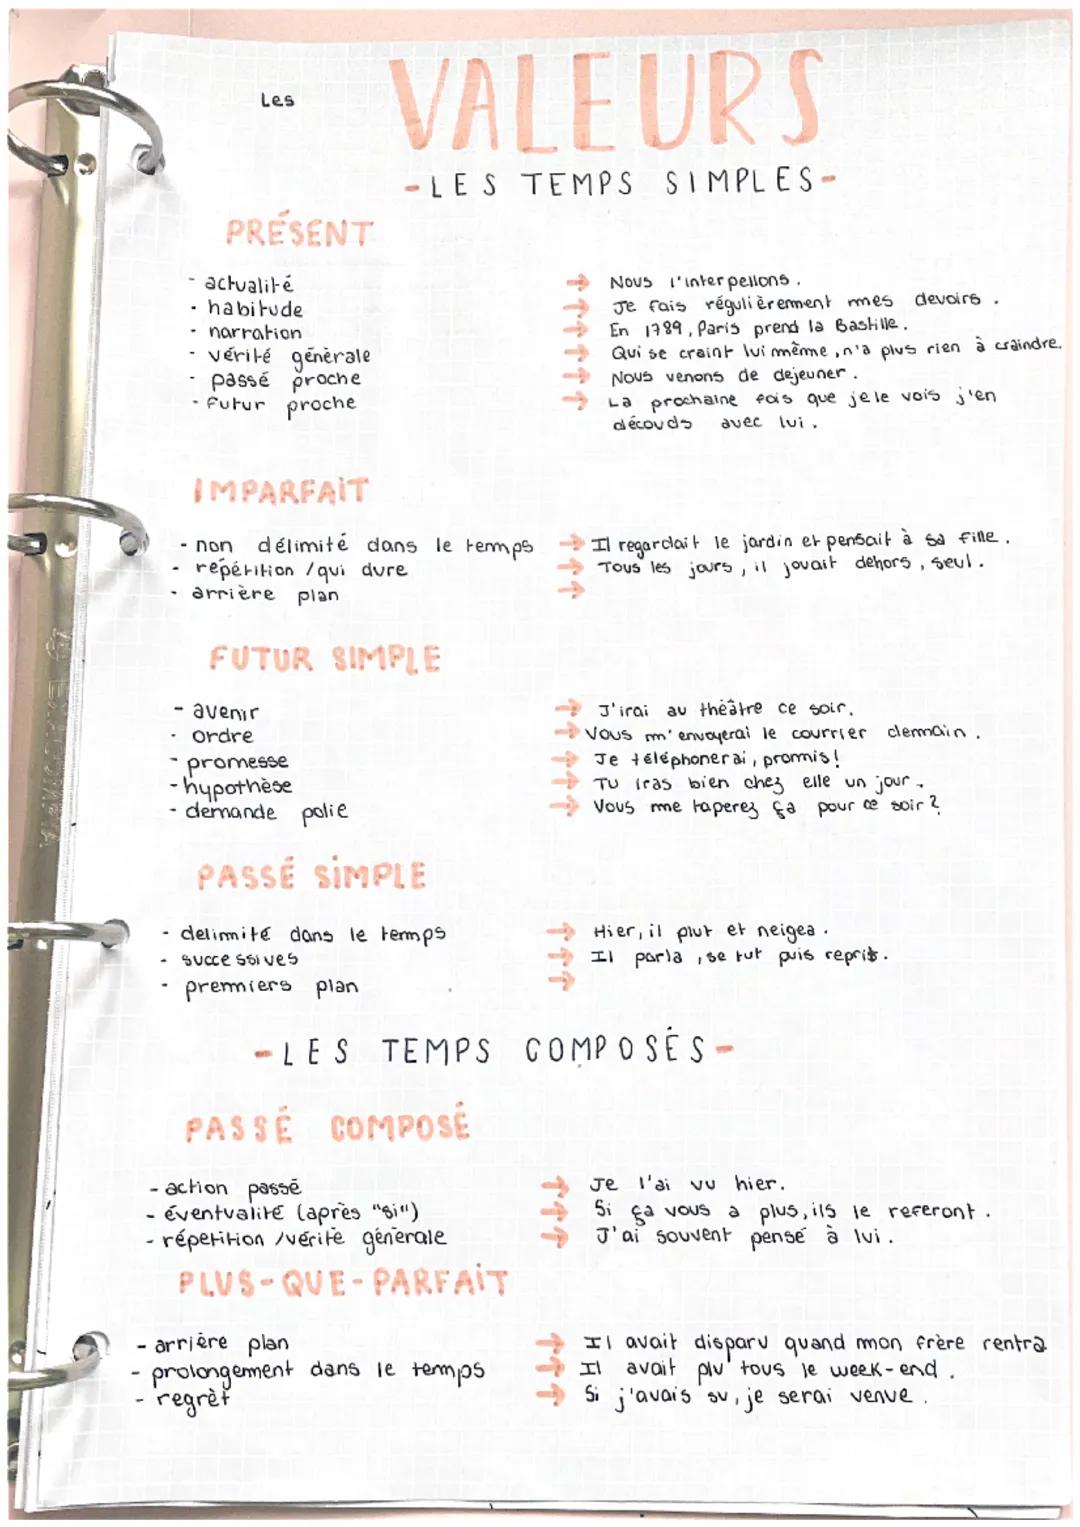 Les VALEURS
-LES TEMPS SIMPLES-
PRÉSENT
- actualité → Nous l'interpellons.
- habitude → Je fais régulièrement mes devoirs.
- narration → En 1789, Paris prend la Bastille.
- vérité générale → Qui se craint lui même, n'a plus rien à craindre.
- passé proche → Nous venons de dejeuner.
- futur proche → La prochaine fois que je le vois j'en
découds avec lui.
IMPARFAIT
- non délimité dans le temps → Il regardait le jardin et pensait à sa fille.
- répétition / qui dure → Tous les jours, il jouait dehors, seul.
- arrière plan →
FUTUR SIMPLE
- avenir → J'irai au théâtre ce soir.
- ordre → Vous m'envoyerai le courrier demain.
- promesse → Je téléphonerai, promis!
- hypothèse → Tu iras bien chez elle un jour.
- demande polie → Vous me taperez ça pour ce soir?
PASSÉ SIMPLE
- delimité dans le temps → Hier, il plut et neigea.
- successives → Il parla, se tut puis reprit.
- premiers plan →
-LES TEMPS COMPOSÉS-
PASSÉ COMPOSÉ
- action passé → Je l'ai vu hier.
- éventualité (après "si") → Si ça vous a plus, ils le referont.
- répetition / vérité générale → J'ai souvent pensé à lui.
PLUS-QUE-PARFAIT
- arrière plan → Il avait disparu quand mon frère rentra
- prolongement dans le temps → Il avait plu tous le week-end.
- regrèt → Si j'avais su, je serai venue.